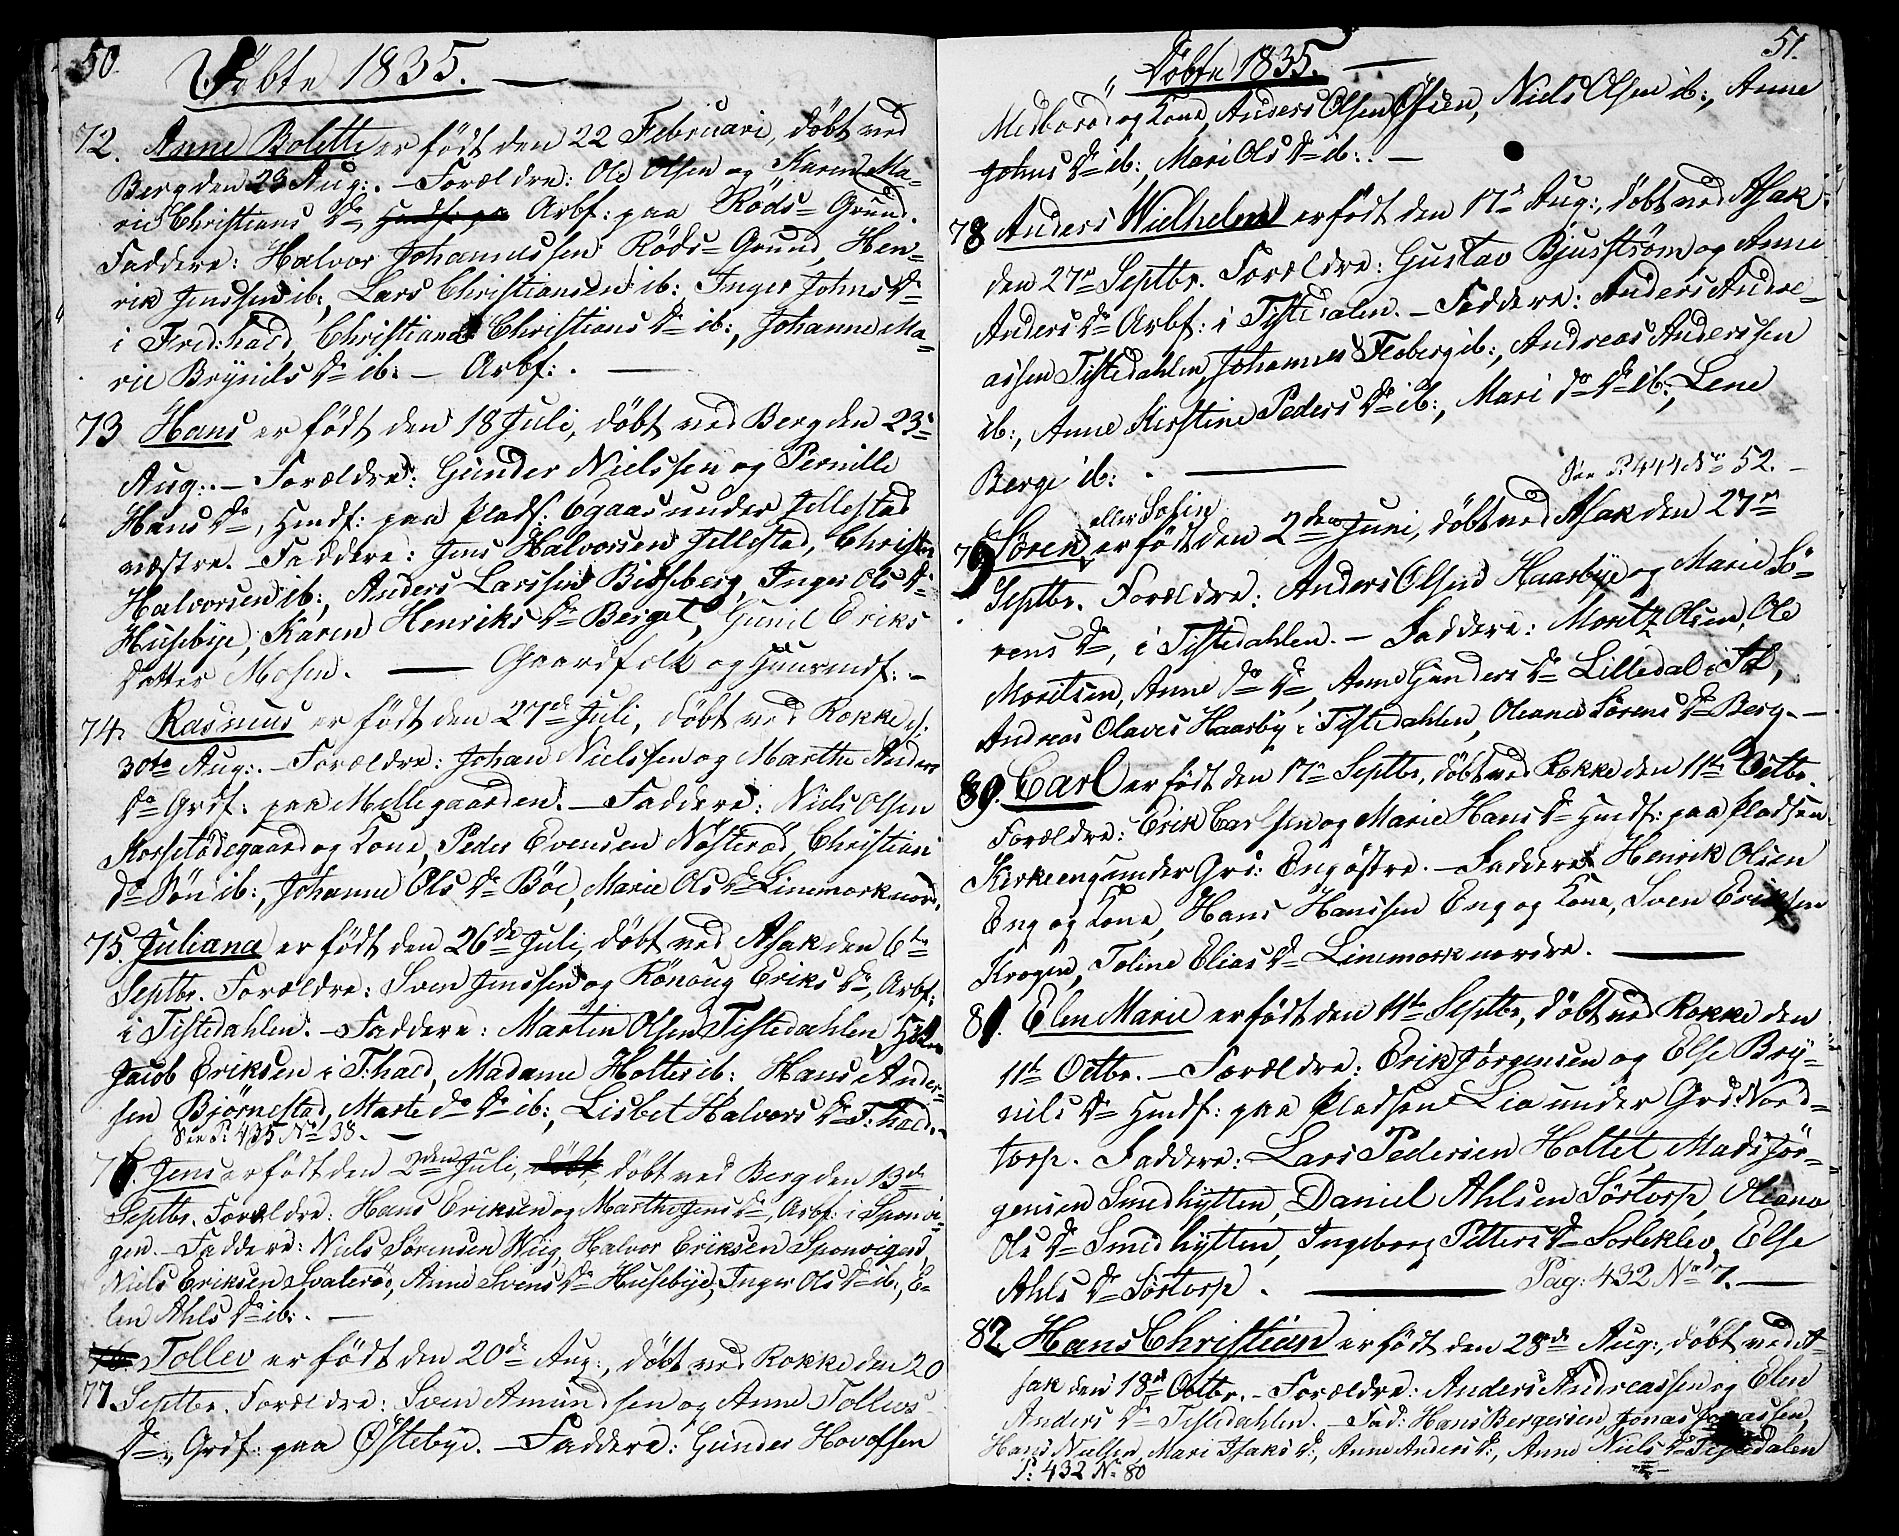 50.
Döbte 1835.
72. Anne Bolette er født den 22 Februari, döbt ved
Berg den 23 Aug:. – Forældre: Ole Olsen og Karen Ma-
rie Christians Dr Arbf: paa Röds-Grund.
Faddere: Halvor Johannessen Röds-Grund, Hen-
rik Jenssen ib:, Lars Christiansen ib: Inger Johns Dr
i Fred:hald, Christiane Christians Dr ib:, Johanne Ma-
rie Brynils Dr ib: – Arbf: . —
73 Hans er födt den 18 Juli, döbt ved Berg den 23.
Aug:. – Forældre: Gunder Nielssen og Pernille
Hans Dr, Hmdf: paa Plads: Egaas under Jellestad
væstre. – Faddere: Jens Halvorsen Jellestad, Christen
Halvorsen ib:, Anders Larssen Bisseberg, Inger Ols Dr
Husebye, Karen Henriks Dr Berget, Gunil Eriks
Datter Mosen. — Gaardfolk og Huusmdf: –
74. Rasmus er födt den 27de Juli, döbt ved Rokke d:
30te Aug:. – Forældre: Johan Nielssen og Marthe Anders
Dr Grdf: paa Mellegaarden. – Faddere: Niels Olsen
Korsetödegaard og Kone, Peder Evensen Nösteröd, Christian
do Bön ib:, Johanne Ols Dr Böe, Marie Ols Dr Linemark nord.
75. Juliana er födt den 26de Juli, döbt ved Asak den 6te
Septbr. Forældre: Sven Jenssen og Rönoug Eriks Dr, Arbf:
i Tistedahlen. – Faddere: Martin Olsen Tistedahlen,
Jacob Eriksen i F:hald, Madame Holter ib: Hans Ander-
sen Björnestad, Marte do Dr ib:, Lisbet Halvors Dr F:hald. –
See P: 435 No 38. –
76. Jens er födt den 2den Juli, döbt ved Berg den 13de
Septbr. Forældre: Hans Eriksen og Marthe Jens Dr, Arbf: i Sponvi-
gen. – Faddere: Niels Sörensen Wiig, Halvor Eriksen Sponvigen,
Niels Eriksen Svaleröd, Anne Svens Dr Husebye, Inger Ols Dr ib:, E-
len Ahls Dr ib: . —
Tollev er födt den 20de Aug:, döbt ved Rokke den 20
77. Septbr. Forældre: Sven Amundsen og Anne Tollevs
Dr, Grdf: paa Østebye. – Faddere: Gunder Hovolfsen
51.
Döbte 1835. —
og Kone, Anders Olsen, Niels Olsen ib:, Anne
Johns Dr ib:, Mari Ols Dr ib: . —
78 Anders Wielhelm er födt den 17de Aug:, döbt ved Asak
den 27de Septbr. Forældre: Gustav Bjusström og Anne
Anders Dr Arbf: i Tistedalen. – Faddere: Anders Andre-
assen Tistedahlen, Johannes Feoberg ib:, Andreas Anderssen
ib:, Anne Kirstine Peders Dr ib:, Mari do Dr ib:, Lene
Berge ib: . —
See P: 414 No 52. –
eller Sofin
79 Sören er födt den 2den Juni, döbt ved Asak den 27de
Septbr. Forældre: Anders Olsen Haasbye og Marie Sö-
rens Dr, i Tistedahlen. – Faddere: Moritz Olsen, Ole
Moritsen, Anne do Dr, Anne Gunders Dr Lilledal i Td,
Andreas Olaves Haasby i Tistedahlen, Oleane Sörens Dr Berg. —
80. Carl er födt den 17de Septbr, döbt ved Rokke den 11te Octbr.
Forældre: Erik Carlsen og Marie Hans Dr Hmdf: paa Pladsen
Kirkeeng under Grd: Eng östre. – Faddere: Henrik Olsen
Eng og Kone, Hans Hanssen Eng og Kone, Sven Eriksen
Krogen, Toline Elias Dr Linemark nordre. —
81. Elen Marie er födt den 11te Septbr, döbt ved Rokke den
11te Octbr. – Forældre: Erik Jørgensen og Else Bry-
nils Dr Hmdf: paa Pladsen Lia under Grd: Nord-
torp. Faddere: Lars Pedersen Holtet, Mads Jör-
gensen Smedhytten, Daniel Ahlsen Sörtorp, Oleana
Ols Dr Smedhytten, Ingeborg Petters Dr Sorleklev, Else
Ahls Dr Sörtorp . — Pag: 432 No 7. —
82. Hans Christian er födt den 28de Aug:, döbt ved A-
sak den 18de Octbr. – Forældre: Anders Andreassen og Elen
Anders Dr Tistedahlen. – Fad: Hans Bergersen, Jonas Jonassen,
Hans Nielsen, Mari Isaks D:, Anne Anders D:, Anne Niels Dr Tistedalen
P: 432 No 80